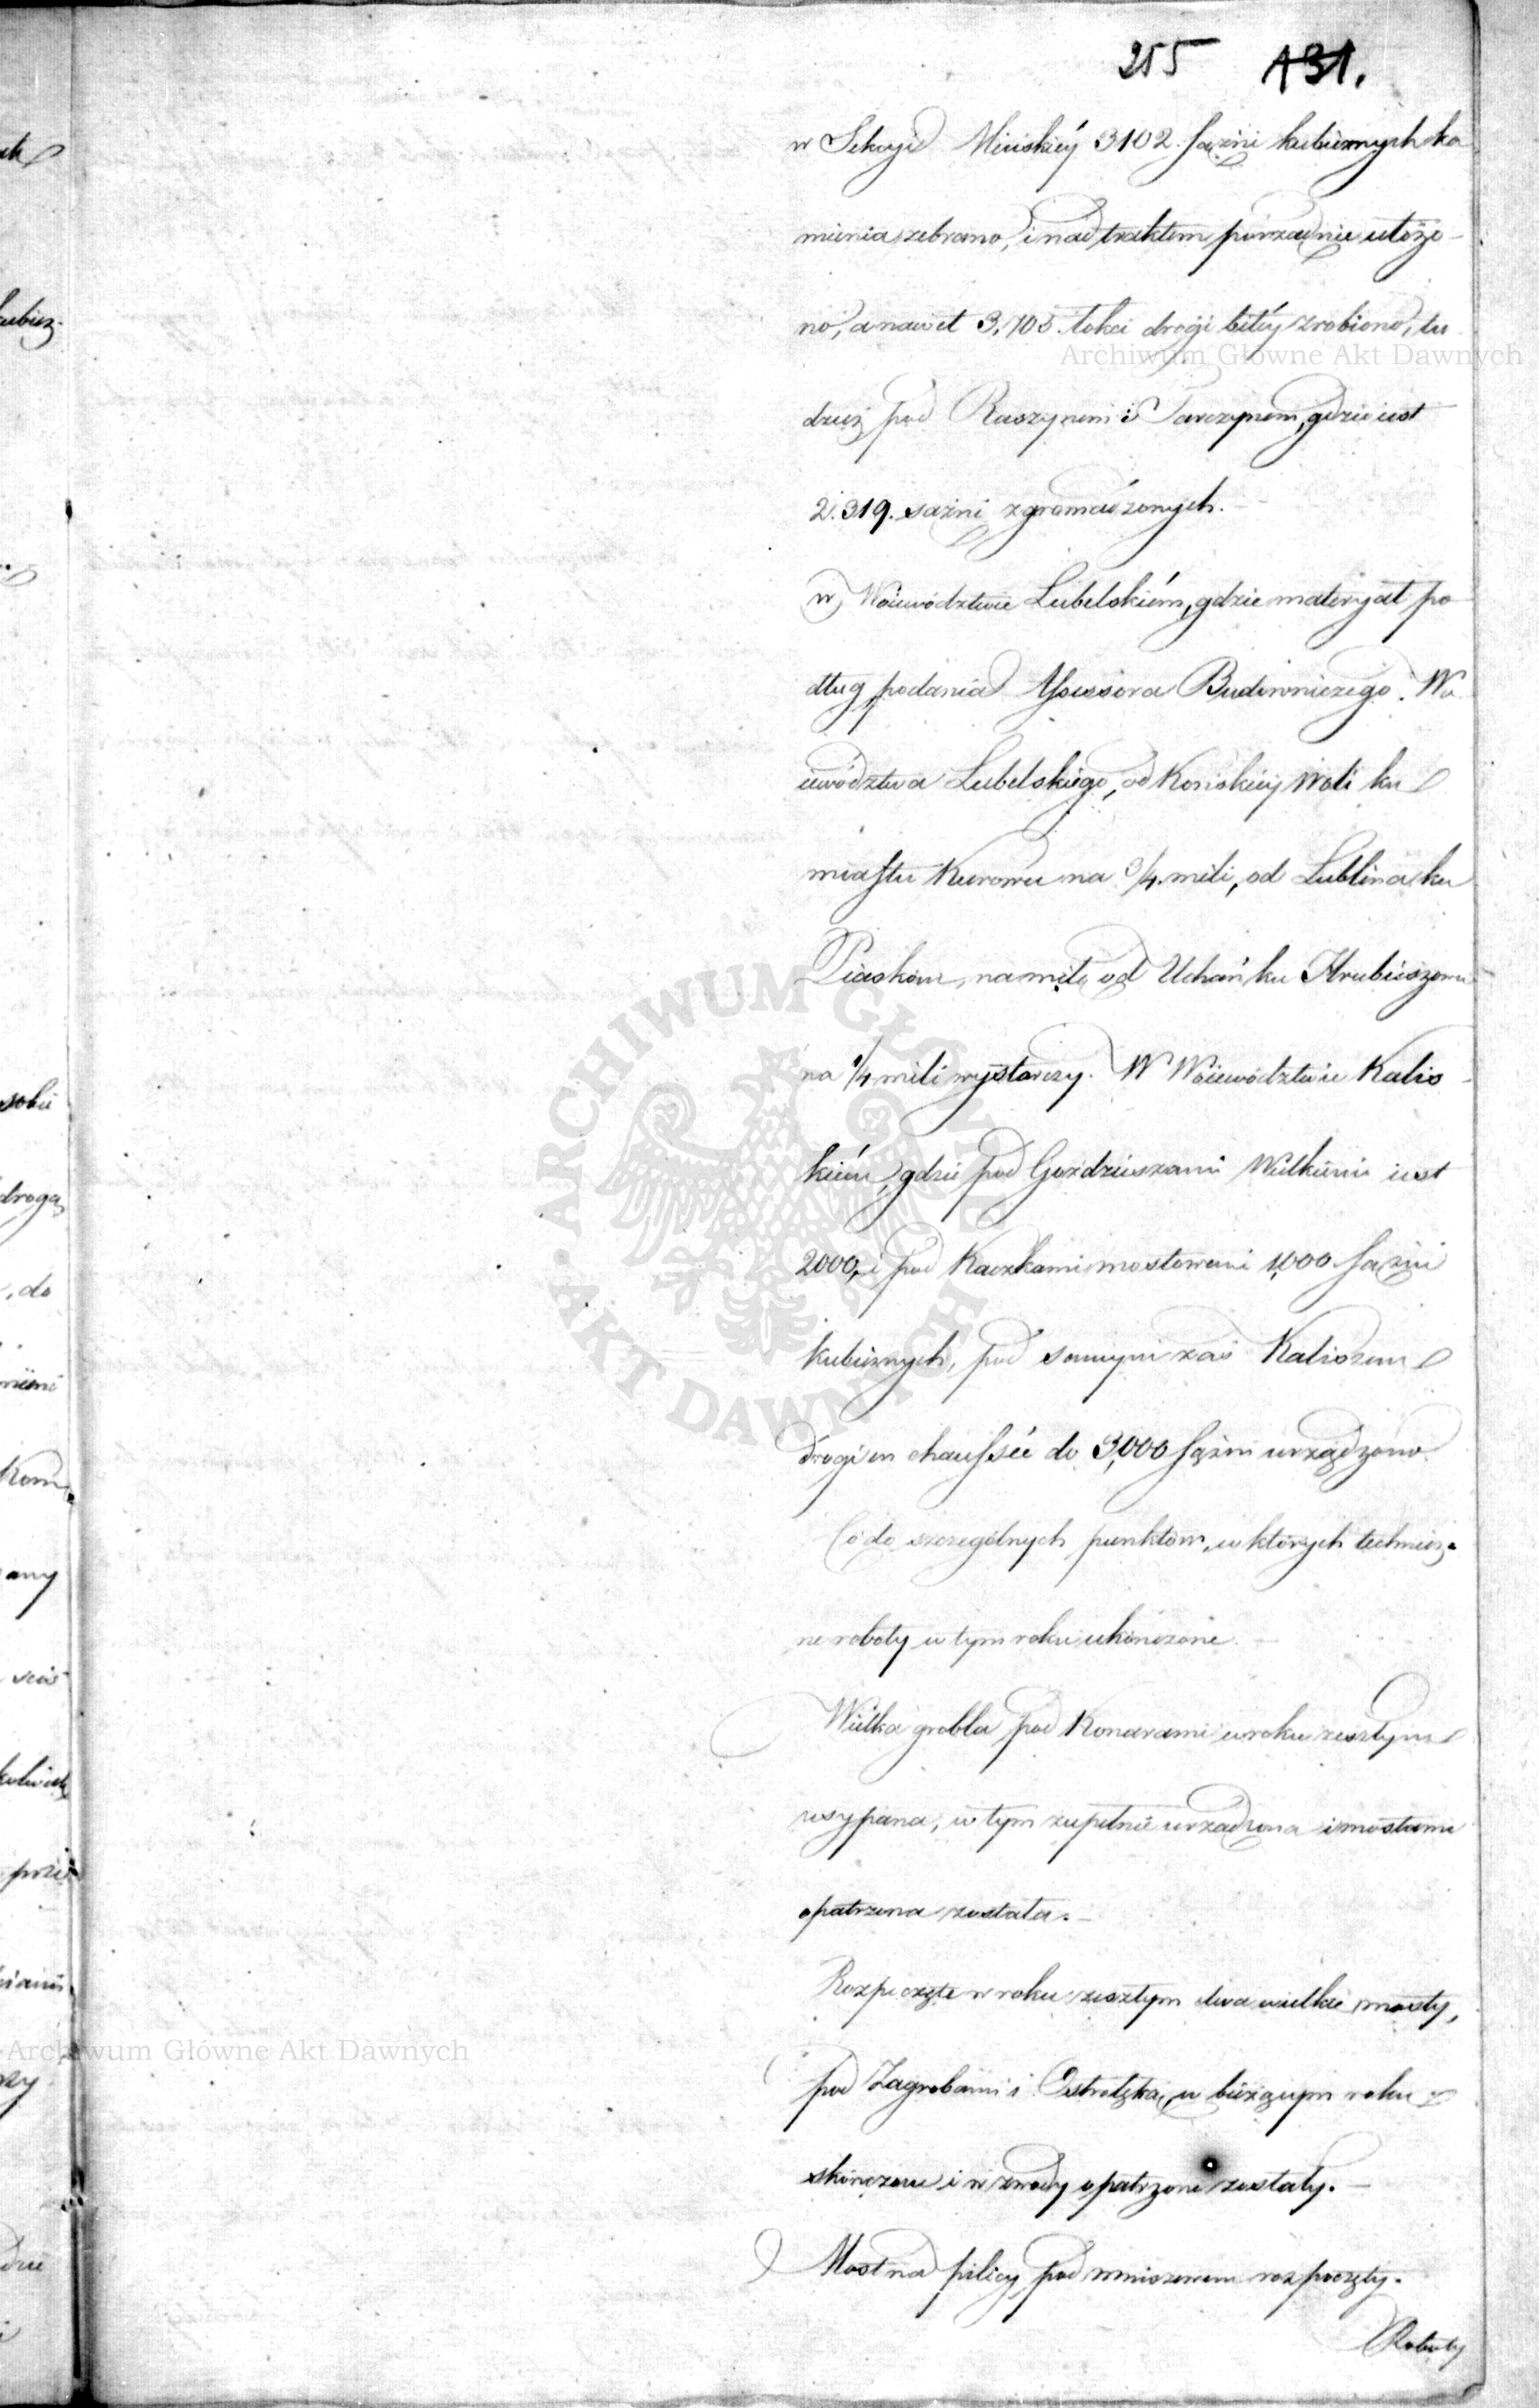 255 131.
w Sekcyi Mińskiéy 3102. sążni kubicznych ka
mienia zebrano, i nad traktem porządnie ułożo-
no, a nawet 3,105. łokci drogi bitéy zrobiono, tu
dzież pod Raszynem i Tarczynem, gdzie iest
2.319. sążni zgromadzonych.
w Woiewództwie Lubelskiém, gdzie materyał po
dług podania Assessora Budowniczego Wo
iewództwa Lubelskiego, od Końskiéy Woli ku
miastu Kurowu na 3/4 mili, od Lublina ku
Piaskom, na milę od Uchań ku Hrubieszowu
na 1/4 mili wystarczy. W Woiewództwie Kalis
kiém, gdzie pod Goździeszami Wielkiemi iest
2000, i pod Kaczkami mostowemi 1,000 sążni
kubicznych, pod samym zaś Kaliszem
drogi en chaussée do 3,000 sążni urządzono
Co do szczególnych punktów, w których technicz-
ne roboty w tym roku ukończone.
Wielka grobla pod Konarami w roku zeszłym
usypana, w tym zupełnie urządzona i mostami
opatrzona została.
Rozpoczęte w roku zeszłym dwa wielkie mosty,
pod Zagrobami i Ostrołęką, w bieżącym roku
skończone i w zwody opatrzone zostały.
Most na pilicy pod mniszewem rozpoczęty.
Roboty
Archiwum Główne Akt Dawnych
ARCHIWUM GŁÓWNE AKT DAWNYCH
Archiwum Główne Akt Dawnych